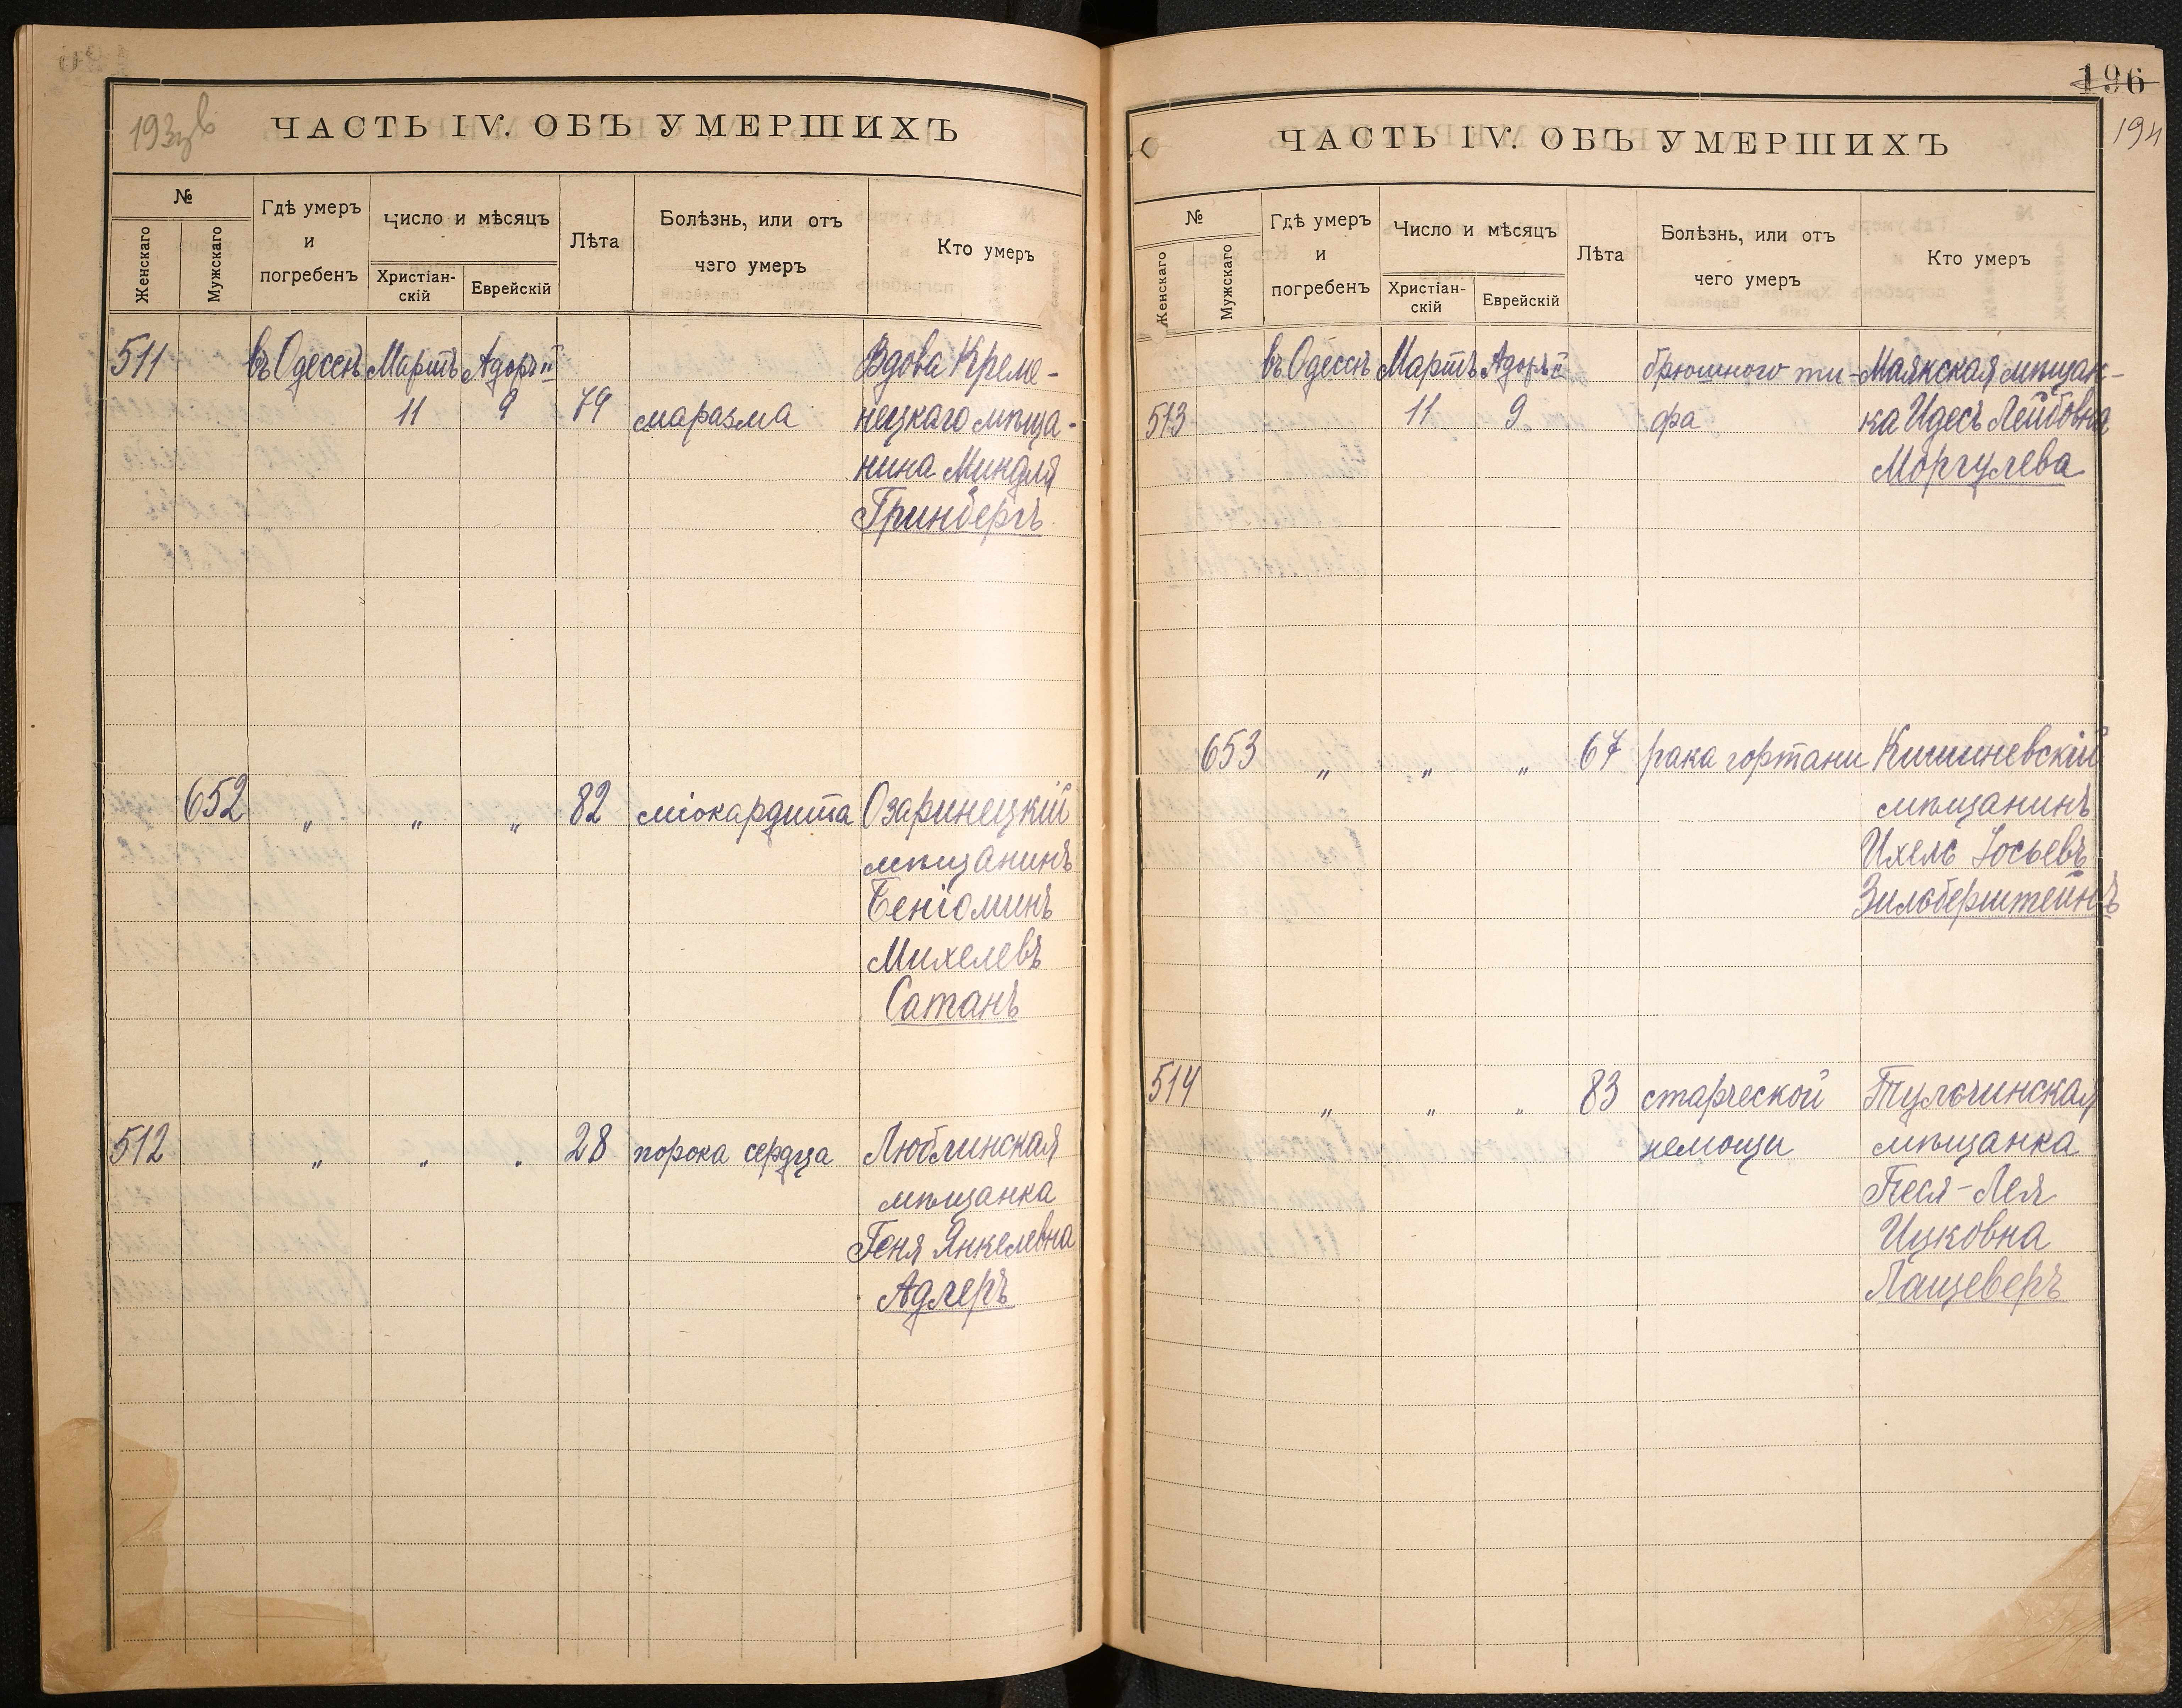 193об
ЧАСТЬ IV. ОБЪ УМЕРШИХЪ
№
Женскаго
Мужскаго
Гдѣ умеръ
и
погребенъ
Число и мѣсяцъ
Христіан-
скій
Еврейскій
Лѣта
Болѣзнь, или отъ
чего умеръ
Кто умеръ
511 въ Одессѣ Мартъ Адоръ II Вдова Креме-
11 9 79 маразма нецкаго мѣща-
нина Миндля
Гринбергъ
652 „ „ „ 82 міокардита Озаринецкій
мѣщанинъ
Беніоминъ
Михелевъ
Сатанъ
512 „ „ „ 28 порока сердца Люблинская
мѣщанка
Геня Янкелевна
Адлеръ
196
194
ЧАСТЬ IV. ОБЪ УМЕРШИХЪ
№
Женскаго
Мужскаго
Гдѣ умеръ
и
погребенъ
Число и мѣсяцъ
Христіан-
скій
Еврейскій
Лѣта
Болѣзнь, или отъ
чего умеръ
Кто умеръ
въ Одессѣ Мартъ Адоръ брюшного ти- Маякская мѣщан-
513 11 9 фа ка Идесъ Лейбовна
Моргулева
653 „ „ „ 67 рака гортани Кишиневскій
мѣщанинъ
Ихель Іосьевъ
Зильберштейнъ
514 „ „ „ 83 старческой Тульчинская
немощи мѣщанка
Песя-Лея
Ицковна
Лащеверъ